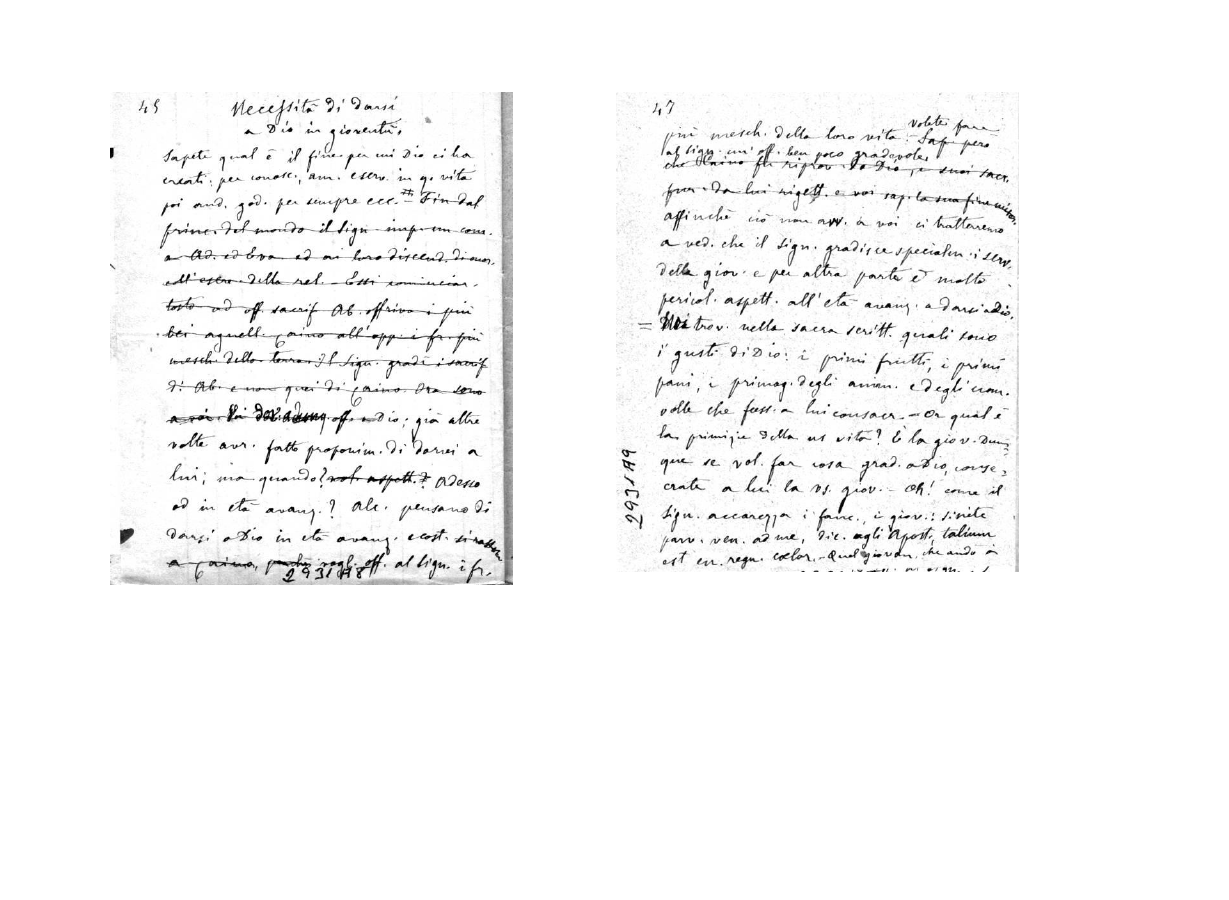 45
Necessità di darsi
a Dio in gioventù.
Sapete qual è il fine per cui Dio ci ha
creati: per conosc., am. e serv. in q. vita
poi and. god. per sempre ecc. = Fin dal
princ. del mondo il Sign. imp. un com.
a Ad. ed Eva ed ai loro discend. di
coll'eserc. della rel. Essi cominciar.
tosto ad off. sacrif. Ab. offriva i più
bei agnell. Caino all'opp. i fr. più
mesch. della terra. Il Sign. gradì i sacrif.
di Ab. e non quei di Caino. Ora
a voi off. a Dio; già altre
volte avr. fatto proponim. di darvi a
lui; ma quando? vol. aspett.? Adesso
od in età avanz.? Alc. pensano di
darsi a Dio in età avanz. e cost.
a Caino, vogl. off. al Sign. i fr.
2931A8
47
volete fare
più mesch. della loro vita. - Sap. però
al Sign. un'off. ben poco gradevole.
che Caino fu riprov. da Dio, e i suoi sacr.
fur. da lui rigett. e voi sap. la sua fine
affinchè ciò non avv. a voi ci tratterremo
a ved. che il Sign. gradisce specialm. i serv.
della giov. e per altra parte è molto
pericol. aspett. all'età avanz. a darsi a Dio.
= Noi trov. nella sacra scritt. quali sono
i gusti di Dio: i primi frutti, i primi
pani, i primog. degli anim. e degli uom.
volle che foss. a lui consacr. - Or qual è
la primizia della vs vita? È la giov. Dun-
que se vol. far cosa grad. a Dio, conse-
crate a lui la vs. giov. - Oh! come il
Sign. accarezza i fanc., i giov.: sinite
parv. ven. ad me, dic. agli Apost., talium
est en. regn. coelor. - Quel giovan. che andò a
2931A9